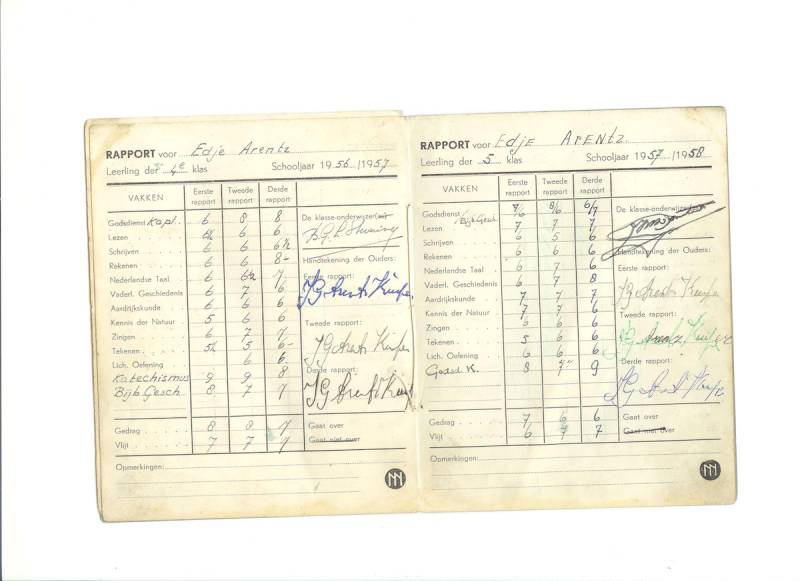 RAPPORT voor Edje Arentz
Leerling der 4e klas Schooljaar 1956/1957
VAKKEN Eerste rapport Tweede rapport Derde rapport
De klasse-onderwijzer(es)
Godsdienst Kapl. 6 8 8
Lezen 6½ 6 6
Schrijven 6 6 6½
Handtekening der Ouders:
Rekenen 6 6 8-
Eerste rapport:
Nederlandse Taal 6 6½ 7
Vaderl. Geschiedenis 6 7 6
Aardrijkskunde 6 6 6
Kennis der Natuur 5 6 6
Tweede rapport:
Zingen 6 7 7
Tekenen 5½ 5 6-
Lich. Oefening 6 6
Derde rapport:
Katechismus 9 9 8
Bijb. Gesch 8 7 7
Gedrag 8 8 7 Gaat over
Vlijt 7 7 7 Gaat niet over
Opmerkingen:
RAPPORT voor Edje Arentz.
Leerling der 5 klas Schooljaar 1957/1958
VAKKEN Eerste rapport Tweede rapport Derde rapport
De klasse-onderwijzer(es)
Godsdienst Bijb Gesch. 7/6 8/6 6/7
Lezen 7 7 7
Schrijven 6 5 6
Handtekening der Ouders:
Rekenen 6 6 6
Eerste rapport:
Nederlandse Taal 6 7 6
Vaderl. Geschiedenis 6 7 8
Aardrijkskunde 7 7 7
Kennis der Natuur 7 7 6
Tweede rapport:
Zingen 6 6 6
Tekenen 5 6 6
Lich. Oefening 6 6 6
Derde rapport:
Godsd. K. 8 7 9
Gedrag 7 6 6 Gaat over
Vlijt 6 7 7 Gaat niet over
Opmerkingen: